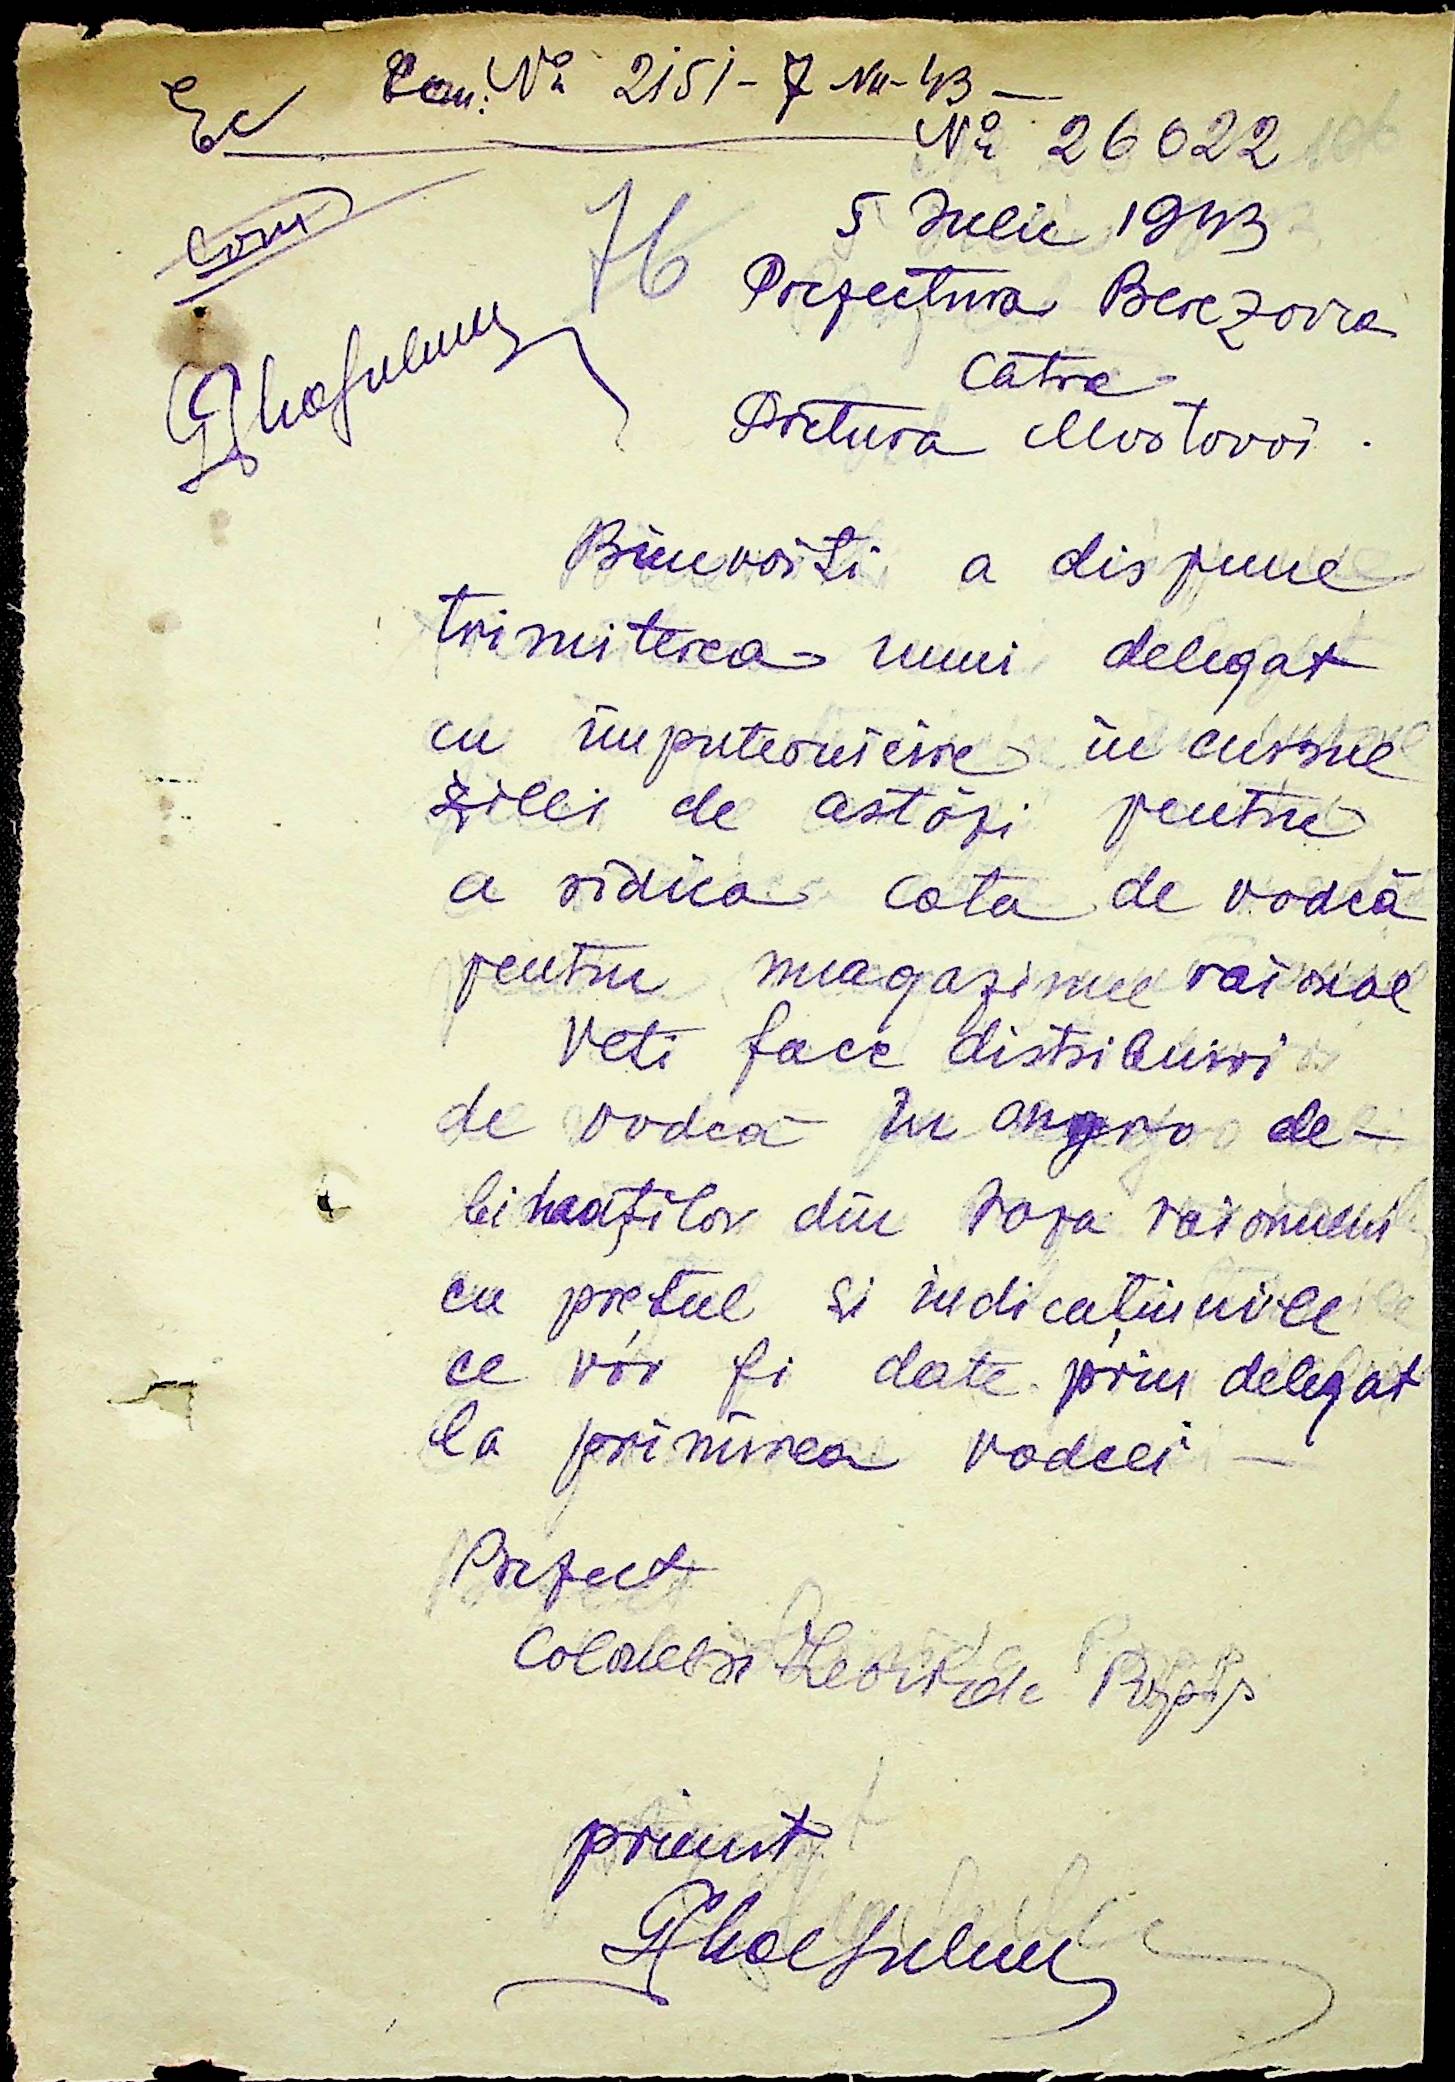 Ec
Com. № 2151-7 VII-43
№ 26022
com
76
5 Iulie 1943
Prefectura Berezovca
Catre
Pretura Mostovoi.
Binevoiti a dispune
trimiterea unui delegat
cu împuternicire în cursul
zilei de astăzi pentru
a ridica cota de vodcă
pentru magazinul raional
Veti face distribuiri
de vodcă în angro de-
bitanților din raza raionului
cu prețul și indicațiunile
ce vor fi date prin delegat
la primirea vodcei —
Prefect
Colonel Leonida Pop
primit